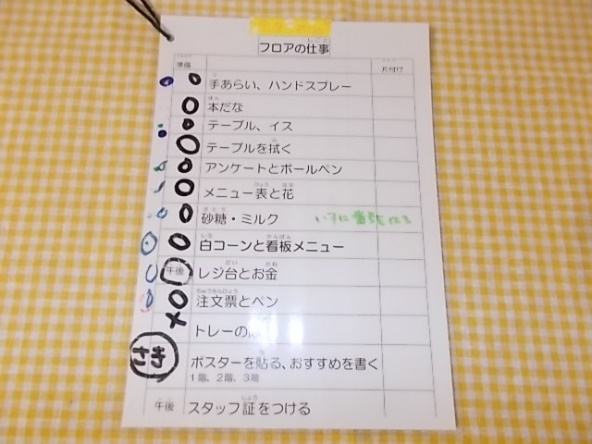 フロアの仕事
準備
片付け
手あらい、ハンドスプレー
本だな
テーブル、イス
テーブルを拭く
アンケートとボールペン
メニュー表と花
砂糖・ミルク
白コーンと看板メニュー
午後 レジ台とお金
注文票とペン
トレーの
さき ポスターを貼る、おすすめを書く
1階、2階、3階
午後 スタッフ証をつける